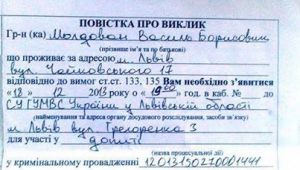 ПОВІСТКА ПРО ВИКЛИК
Гр-н (ка) Молдован Василь Борисович
(прізвище ім'я та по батькові)
що проживає за адресою м. Львів
вул. Чайковського 17
відповідно до вимог ст.ст. 133, 135 Вам необхідно з'явитися
«18» 12 2013 року о «1900» год. в каб. № до
СУ ГУМВС України у Львівській області
(найменування та адреса органу досудового розслідування, засоби зв'язку)
м Львів вул. Григоренка 3
для участі у допиті
(назва процесуальної дії)
у кримінальному провадженні 12013150270001441